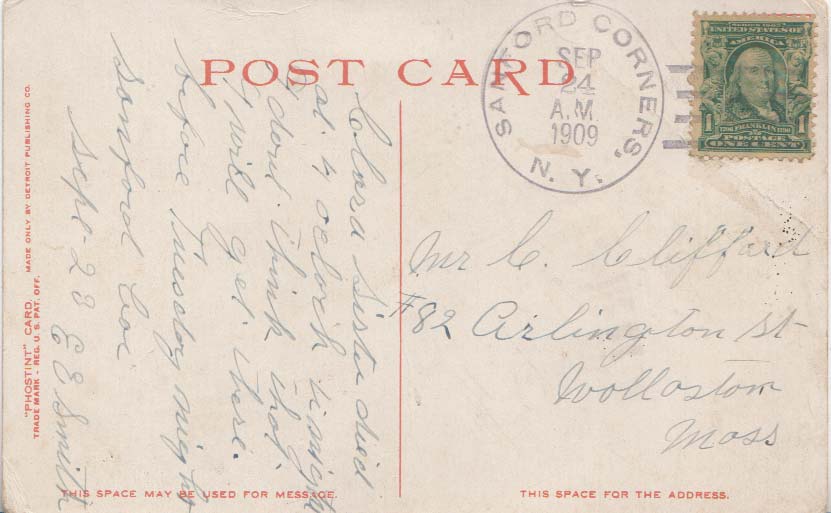 POST CARD
SANFORD CORNERS, N. Y.
SEP
24
A.M.
1909
SERIES 1902
UNITED STATES OF
AMERICA
1 1706 FRANKLIN 1790 1
POSTAGE
ONE CENT
"PHOSTINT" CARD. MADE ONLY BY DETROIT PUBLISHING CO.
TRADE MARK - REG. U. S. PAT. OFF.
Clara Sister died
at 4 oclock tonight
dont think that
I will get there
before Tuesday night
Sanford Cor
Sept - 23 E E Smith
Mr C. Clifford
#82 Arlington st
Wollaston
Mass
THIS SPACE MAY BE USED FOR MESSAGE.
THIS SPACE FOR THE ADDRESS.